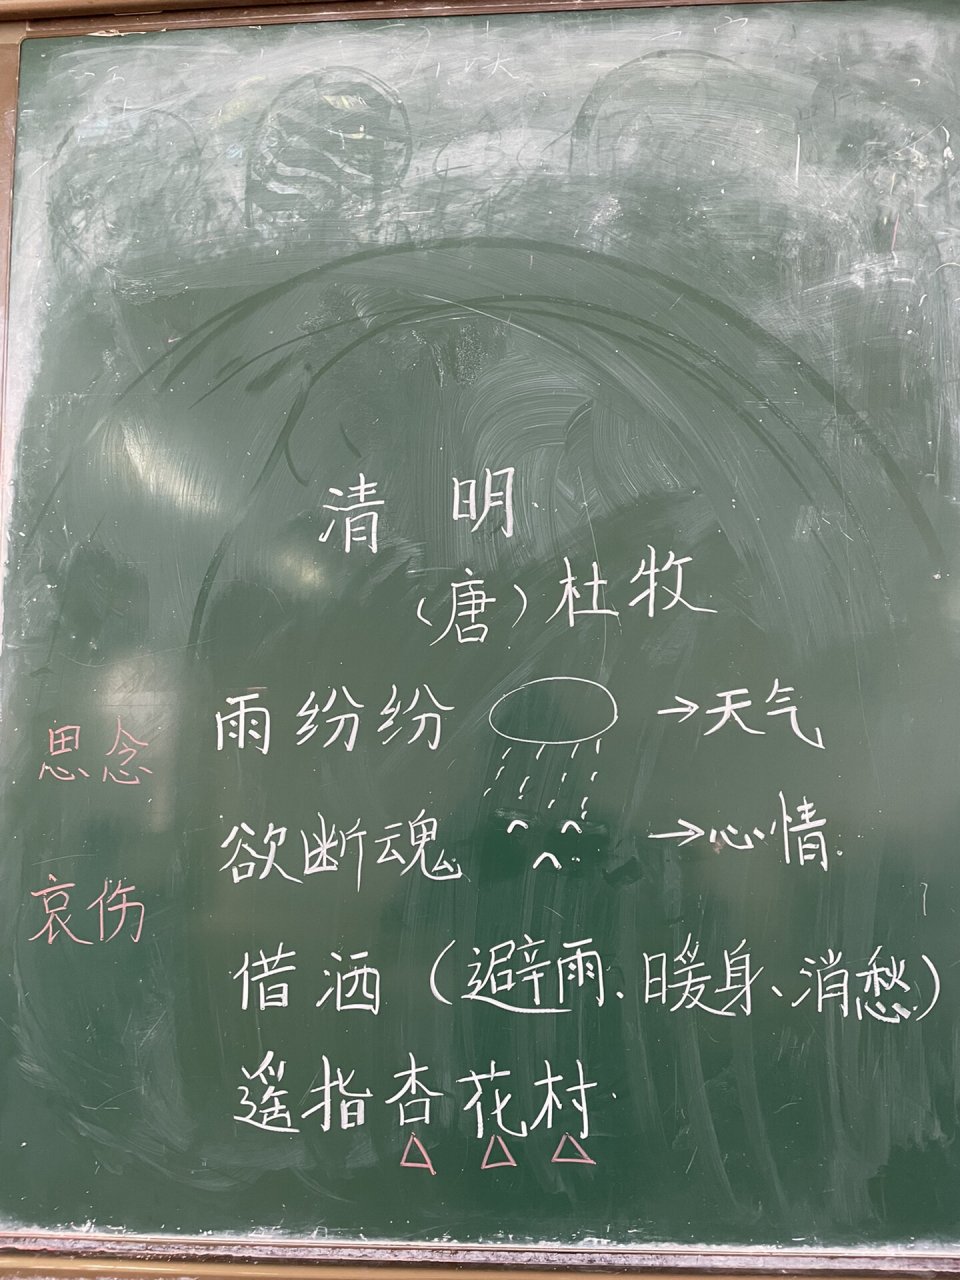 清 明
（唐）杜牧
雨纷纷 →天气
思念
欲断魂 →心情
哀伤
借酒（避雨、暖身、消愁）
遥指杏花村